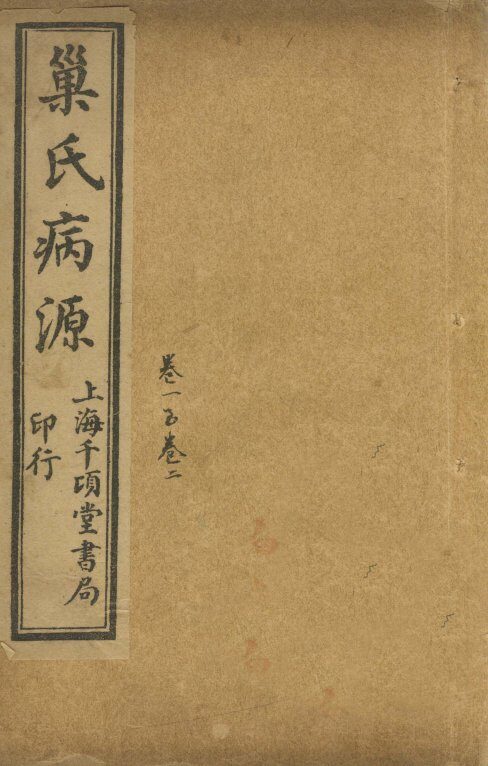 巢氏病源
上海千頃堂書局
印行
卷一至卷二